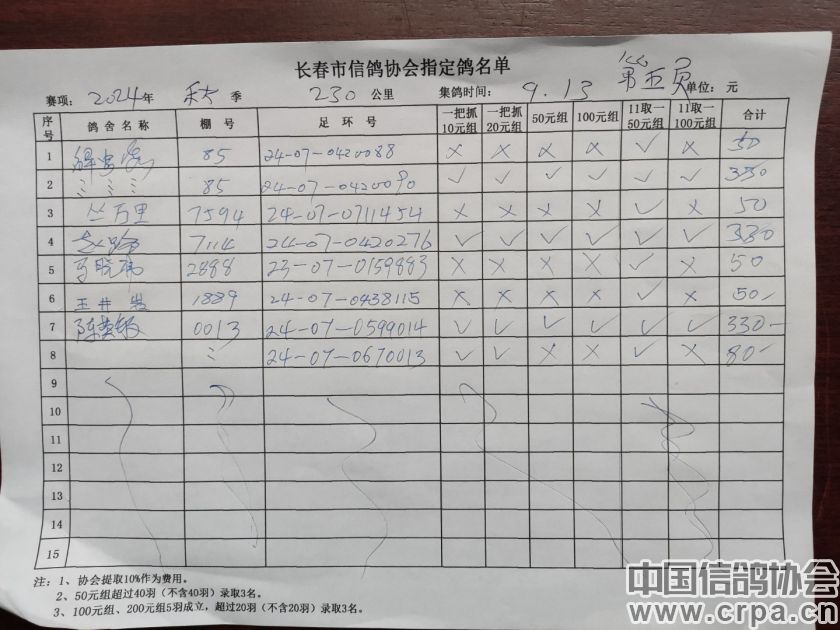 长春市信鸽协会指定鸽名单
第五页
赛项: 2024年 秋 季 230 公里 集鸽时间: 9.13 单位: 元
序号 鸽舍名称 棚号 足环号 一把抓10元组 一把抓20元组 50元组 100元组 11取一50元组 11取一100元组 合计
1 85 24-07-0420088 × × × × ✓ × 50
2 〃 〃 〃 85 24-07-0420090 ✓ ✓ ✓ ✓ ✓ ✓ 330
3 丛万里 7594 24-07-0711454 × × × × ✓ × 50
4 7114 24-07-0420276 ✓ ✓ ✓ ✓ ✓ ✓ 330
5 马晓 2888 23-07-0159883 × × × × ✓ × 50
6 王井 1889 24-07-0438115 × × × × ✓ × 50-
7 陈 0013 24-07-0599014 ✓ ✓ ✓ ✓ ✓ ✓ 330-
8 〃 24-07-0670013 ✓ ✓ × × ✓ × 80-
9
10
11
12
13
14
15
注: 1、协会提取10%作为费用。
2、50元组超过40羽(不含40羽)录取3名。
3、100元组、200元组5羽成立, 超过20羽(不含20羽)录取3名。
中国信鸽协会
www.crpa.cn